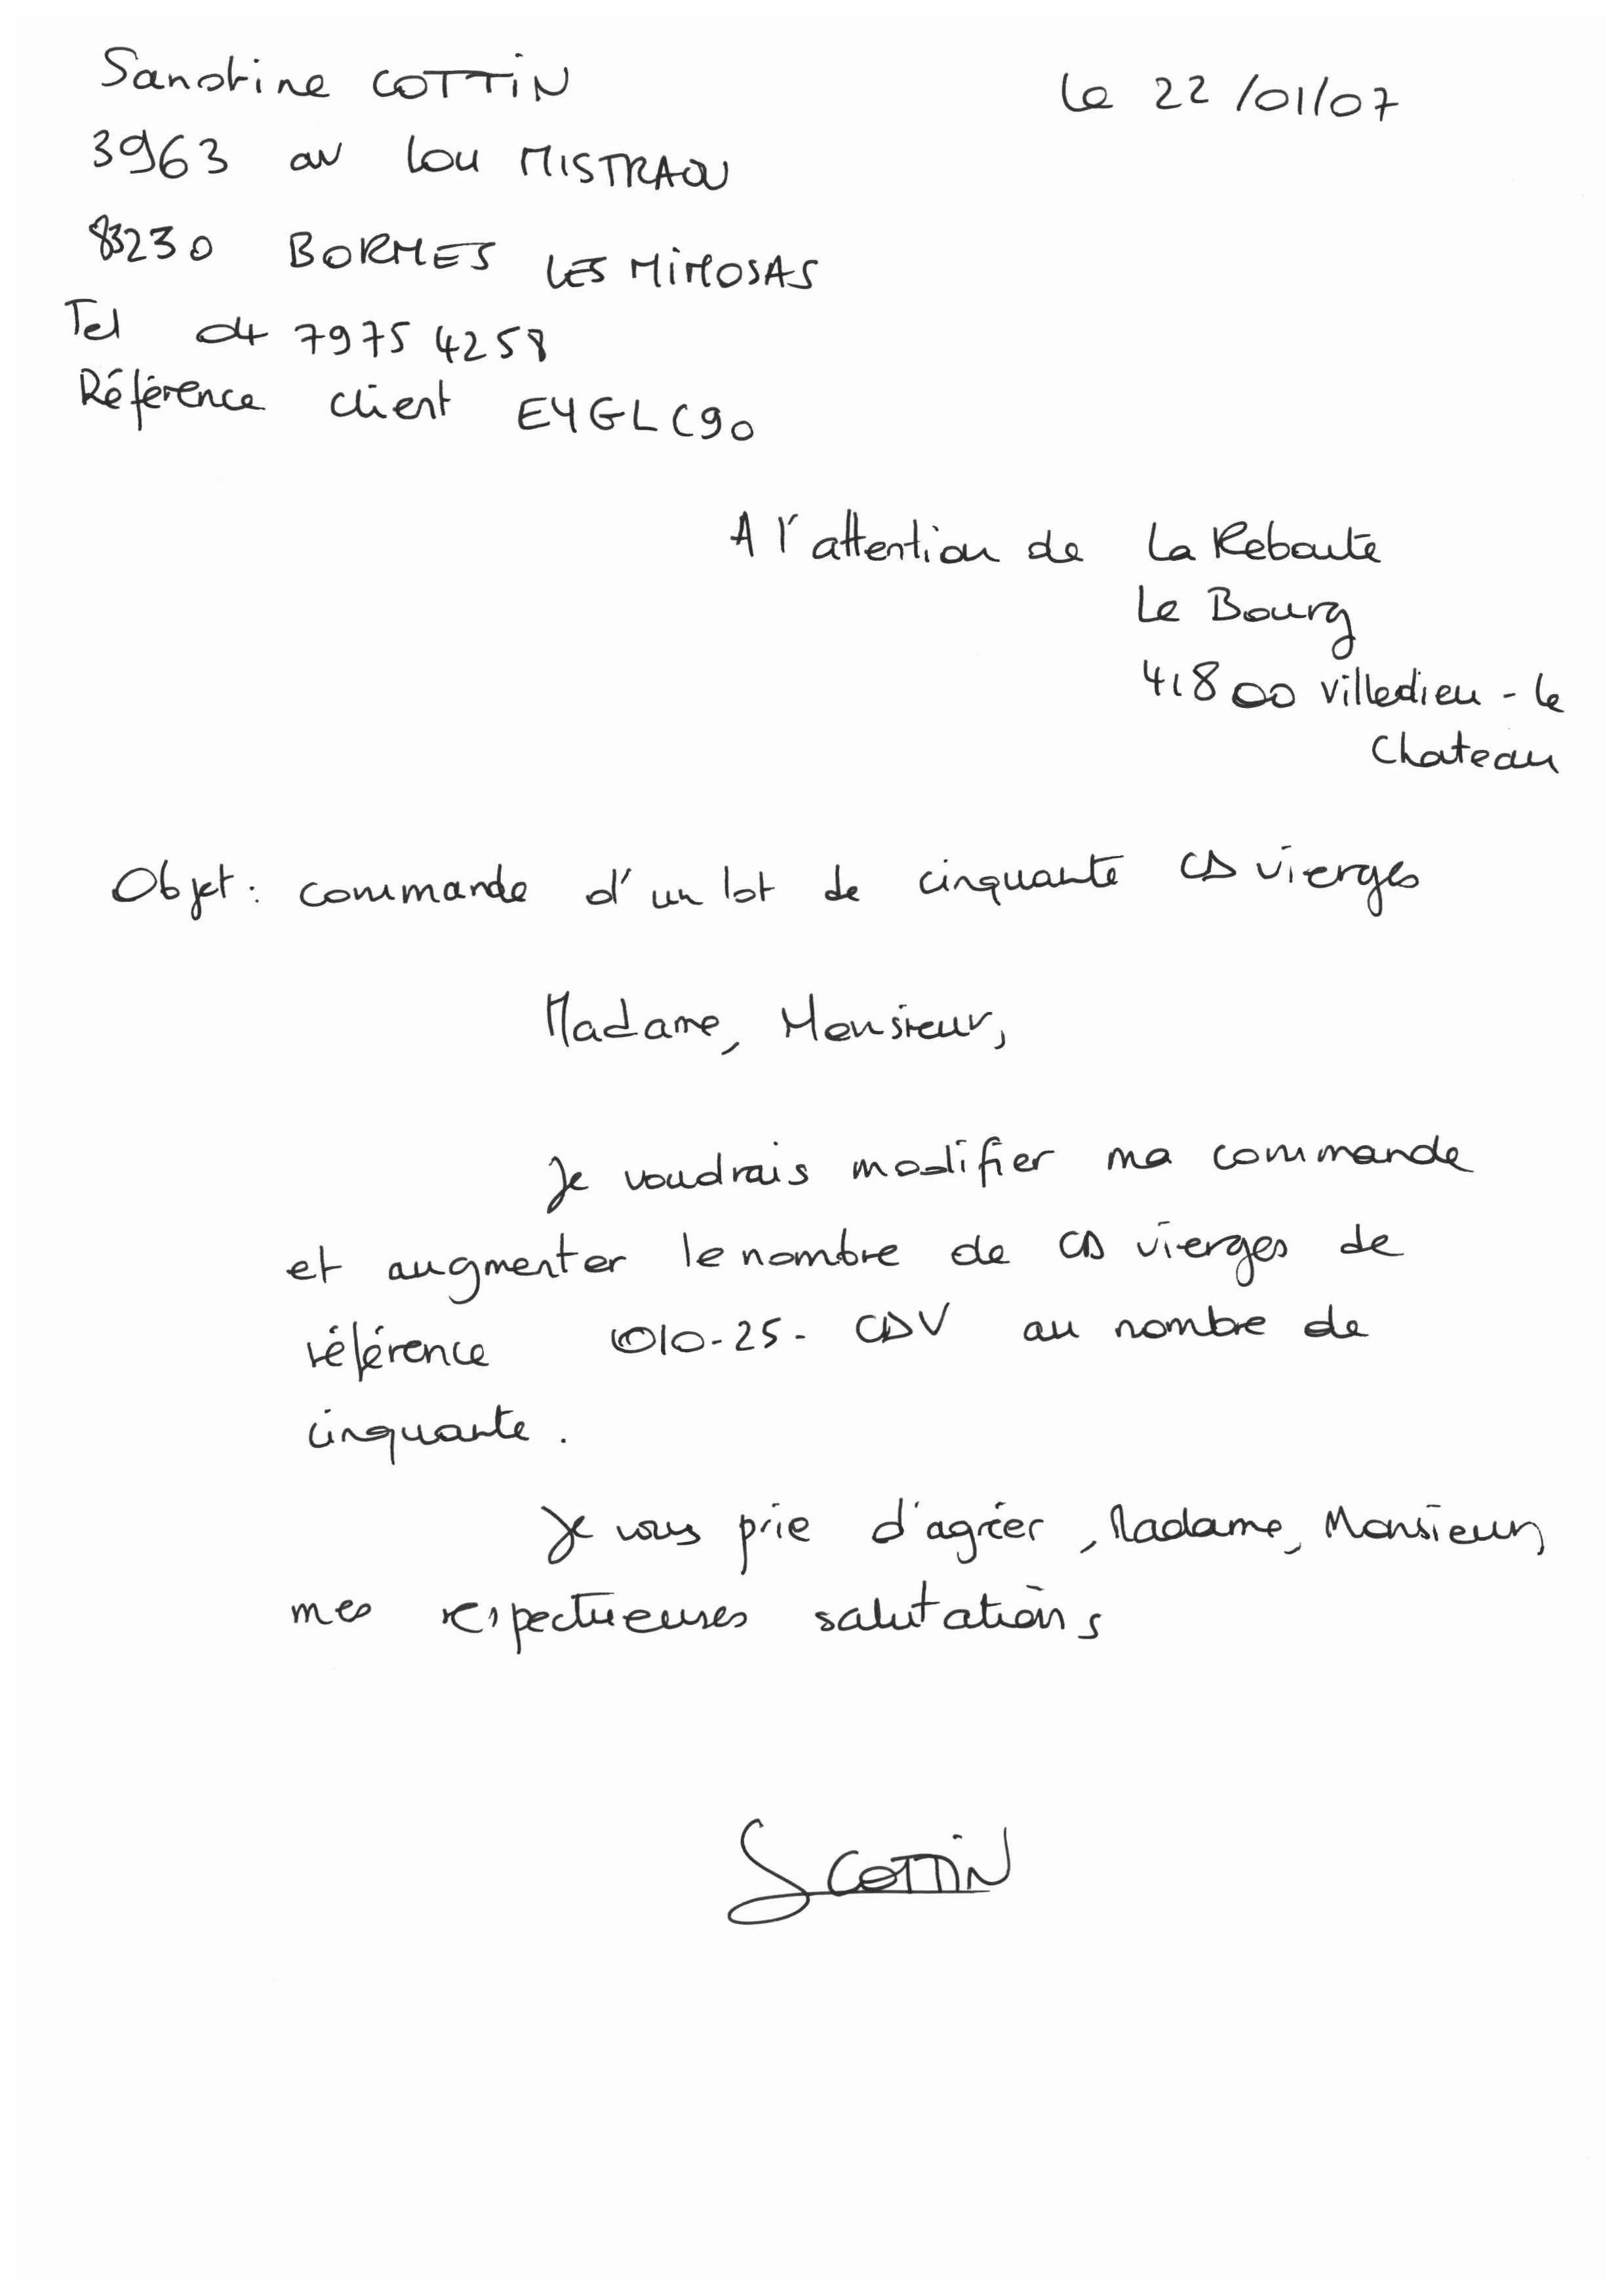 Sandrine COTTiN
Le 22/01/07
3963 av Lou MISTRAOU
83230 BORMES LES MiMOSAS
Tel 04 7975 4258
Référence client EYGLC90
A l'attention de La Reboute
Le Bourg
41800 Villedieu - le
Chateau
Objet : commande d'un lot de cinquante CD vierges
Madame, Monsieur,
Je voudrais modifier ma commande
et augmenter le nombre de CD vierges de
référence 010-25- CDV au nombre de
cinquante.
Je vous prie d'agréer, Madame, Monsieur,
mes respectueuses salutations
S COTTiN